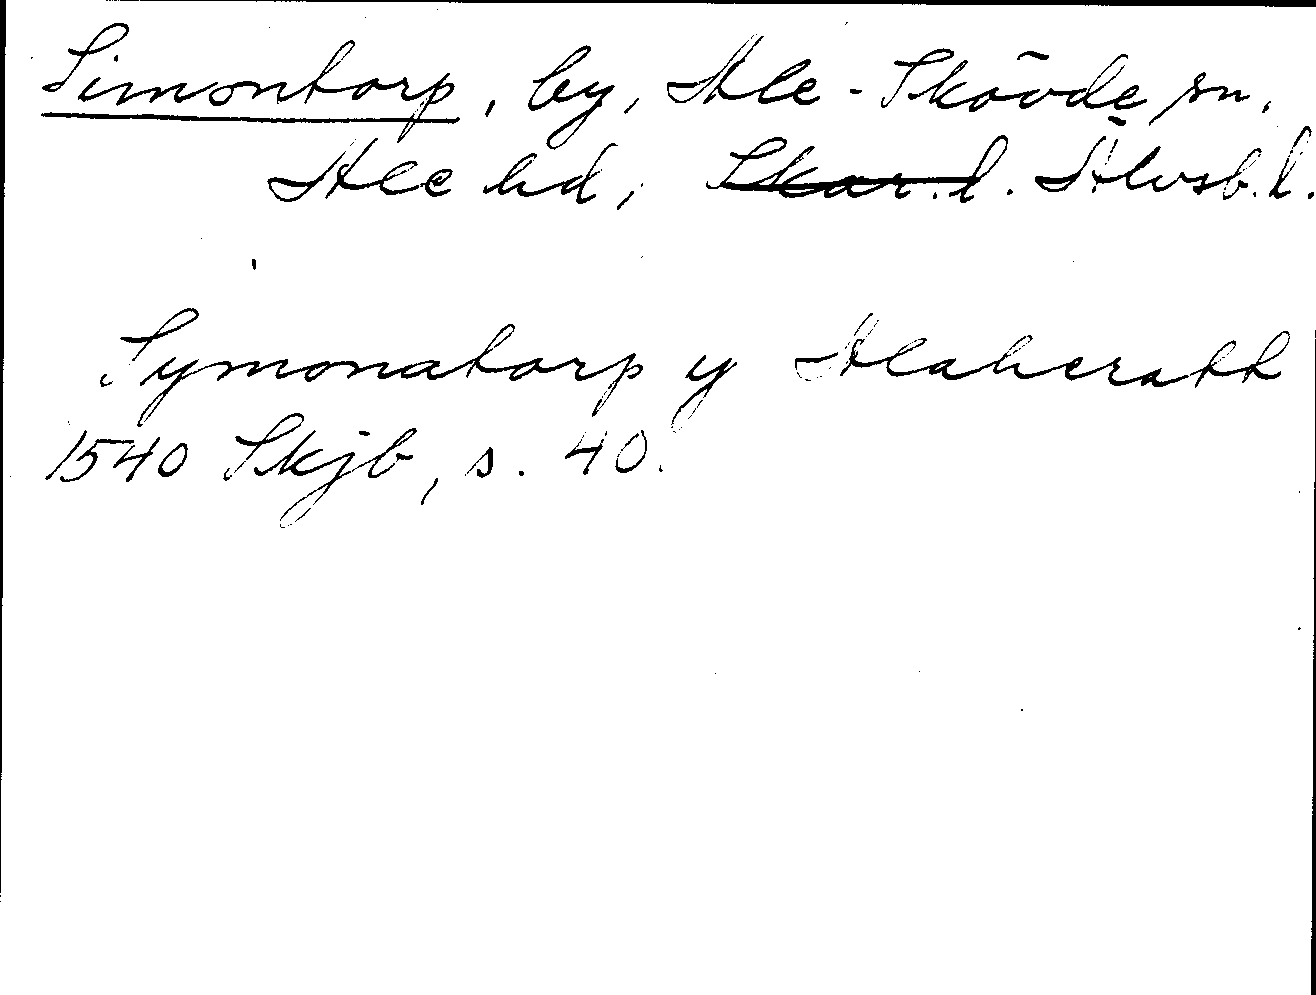 Simontorp, by, Ale-Skövde sn,
Ale hd, Skar.l. Älvsb.l.
Symonatorp y Alaheratt
1540 Skjb, s. 40.